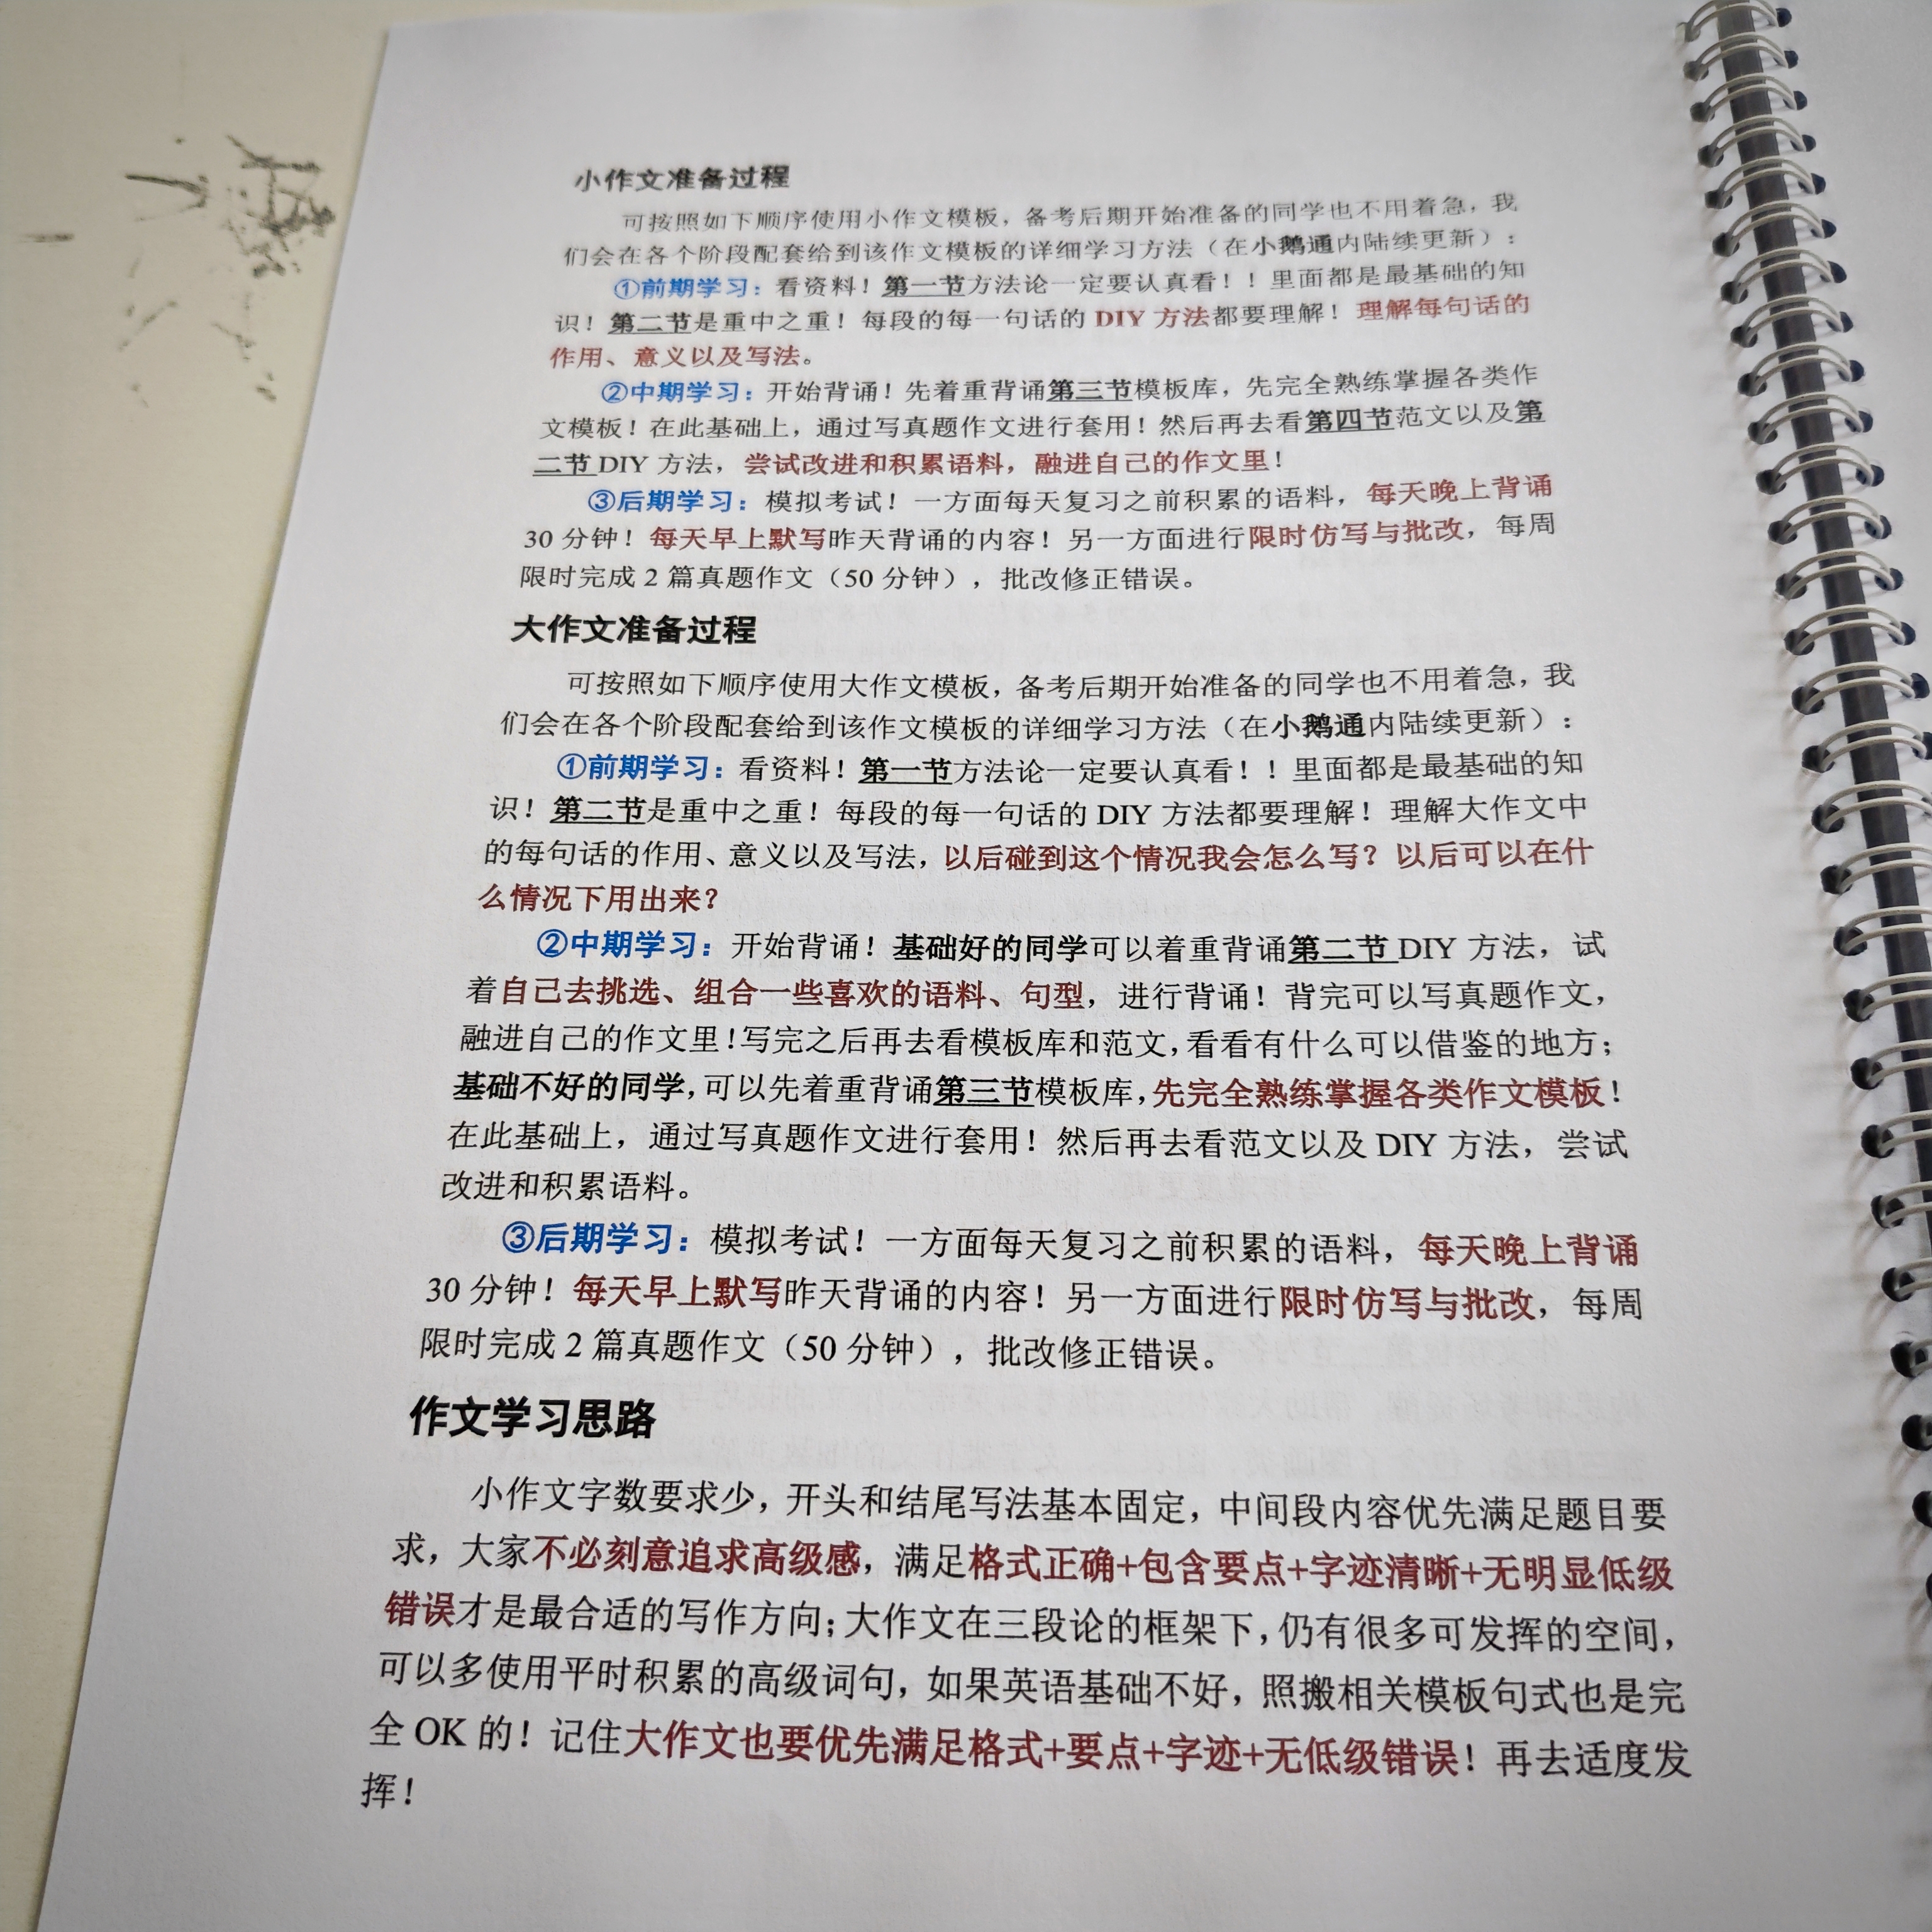 小作文准备过程
可按照如下顺序使用小作文模板，备考后期开始准备的同学也不用着急，我
们会在各个阶段配套给到该作文模板的详细学习方法（在小鹅通内陆续更新）：
①前期学习：看资料！第一节方法论一定要认真看！！里面都是最基础的知
识！第二节是重中之重！每段的每一句话的 DIY 方法都要理解！理解每句话的
作用、意义以及写法。
②中期学习：开始背诵！先着重背诵第三节模板库，先完全熟练掌握各类作
文模板！在此基础上，通过写真题作文进行套用！然后再去看第四节范文以及第
二节 DIY 方法，尝试改进和积累语料，融进自己的作文里！
③后期学习：模拟考试！一方面每天复习之前积累的语料，每天晚上背诵
30 分钟！每天早上默写昨天背诵的内容！另一方面进行限时仿写与批改，每周
限时完成 2 篇真题作文（50 分钟），批改修正错误。
大作文准备过程
可按照如下顺序使用大作文模板，备考后期开始准备的同学也不用着急，我
们会在各个阶段配套给到该作文模板的详细学习方法（在小鹅通内陆续更新）：
①前期学习：看资料！第一节方法论一定要认真看！！里面都是最基础的知
识！第二节是重中之重！每段的每一句话的 DIY 方法都要理解！理解大作文中
的每句话的作用、意义以及写法，以后碰到这个情况我会怎么写？以后可以在什
么情况下用出来？
②中期学习：开始背诵！基础好的同学可以着重背诵第二节 DIY 方法，试
着自己去挑选、组合一些喜欢的语料、句型，进行背诵！背完可以写真题作文，
融进自己的作文里！写完之后再去看模板库和范文，看看有什么可以借鉴的地方；
基础不好的同学，可以先着重背诵第三节模板库，先完全熟练掌握各类作文模板！
在此基础上，通过写真题作文进行套用！然后再去看范文以及 DIY 方法，尝试
改进和积累语料。
③后期学习：模拟考试！一方面每天复习之前积累的语料，每天晚上背诵
30 分钟！每天早上默写昨天背诵的内容！另一方面进行限时仿写与批改，每周
限时完成 2 篇真题作文（50 分钟），批改修正错误。
作文学习思路
小作文字数要求少，开头和结尾写法基本固定，中间段内容优先满足题目要
求，大家不必刻意追求高级感，满足格式正确+包含要点+字迹清晰+无明显低级
错误才是最合适的写作方向；大作文在三段论的框架下，仍有很多可发挥的空间，
可以多使用平时积累的高级词句，如果英语基础不好，照搬相关模板句式也是完
全 OK 的！记住大作文也要优先满足格式+要点+字迹+无低级错误！再去适度发
挥！